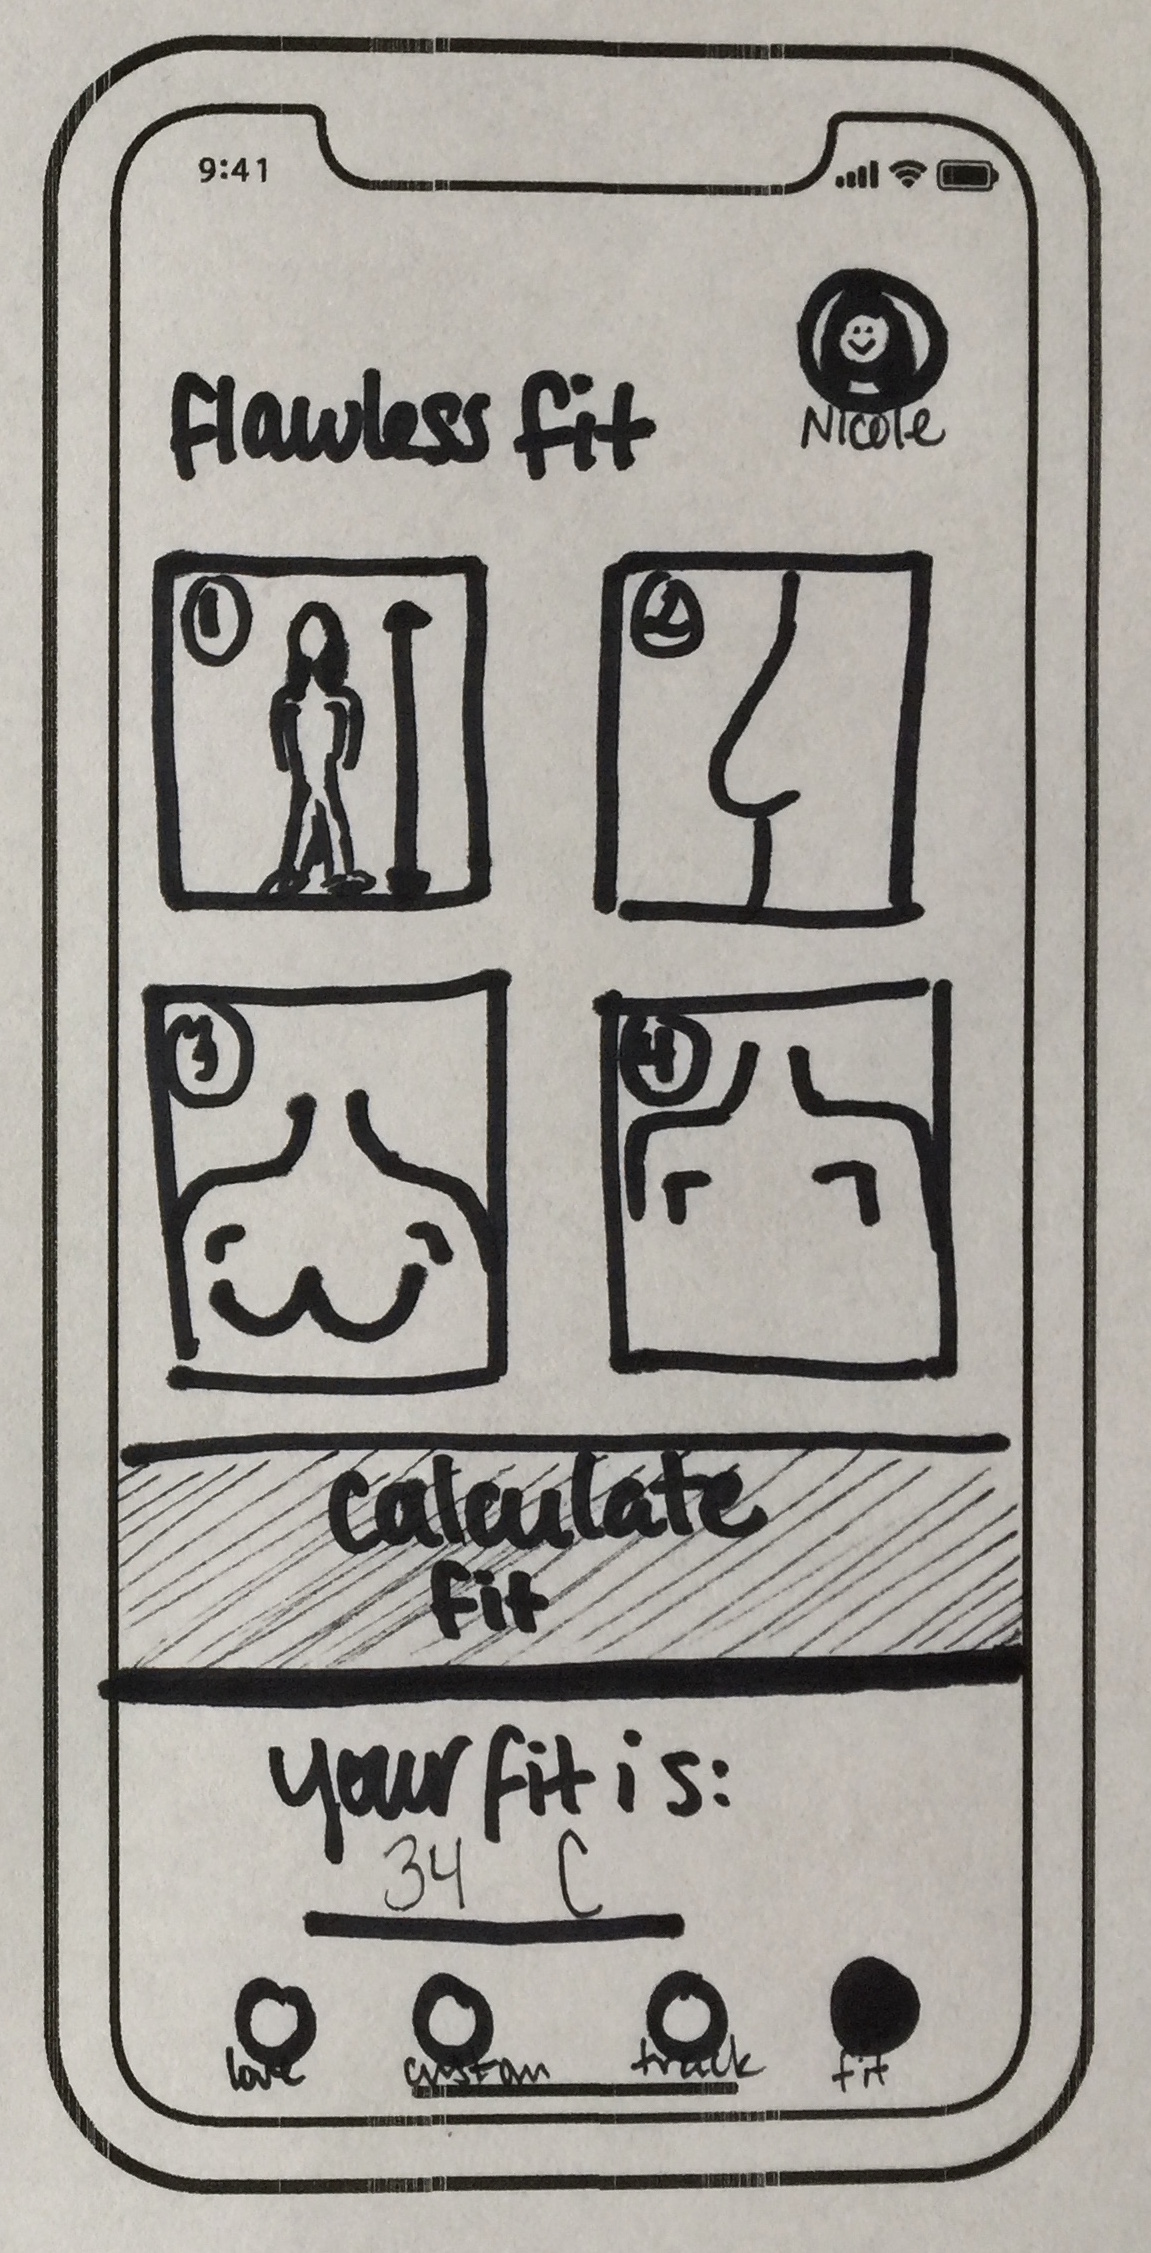 9:41
Nicole
Flawless fit
1
2
3
4
Calculate
fit
your fit is:
34 C
love
custom
track
fit